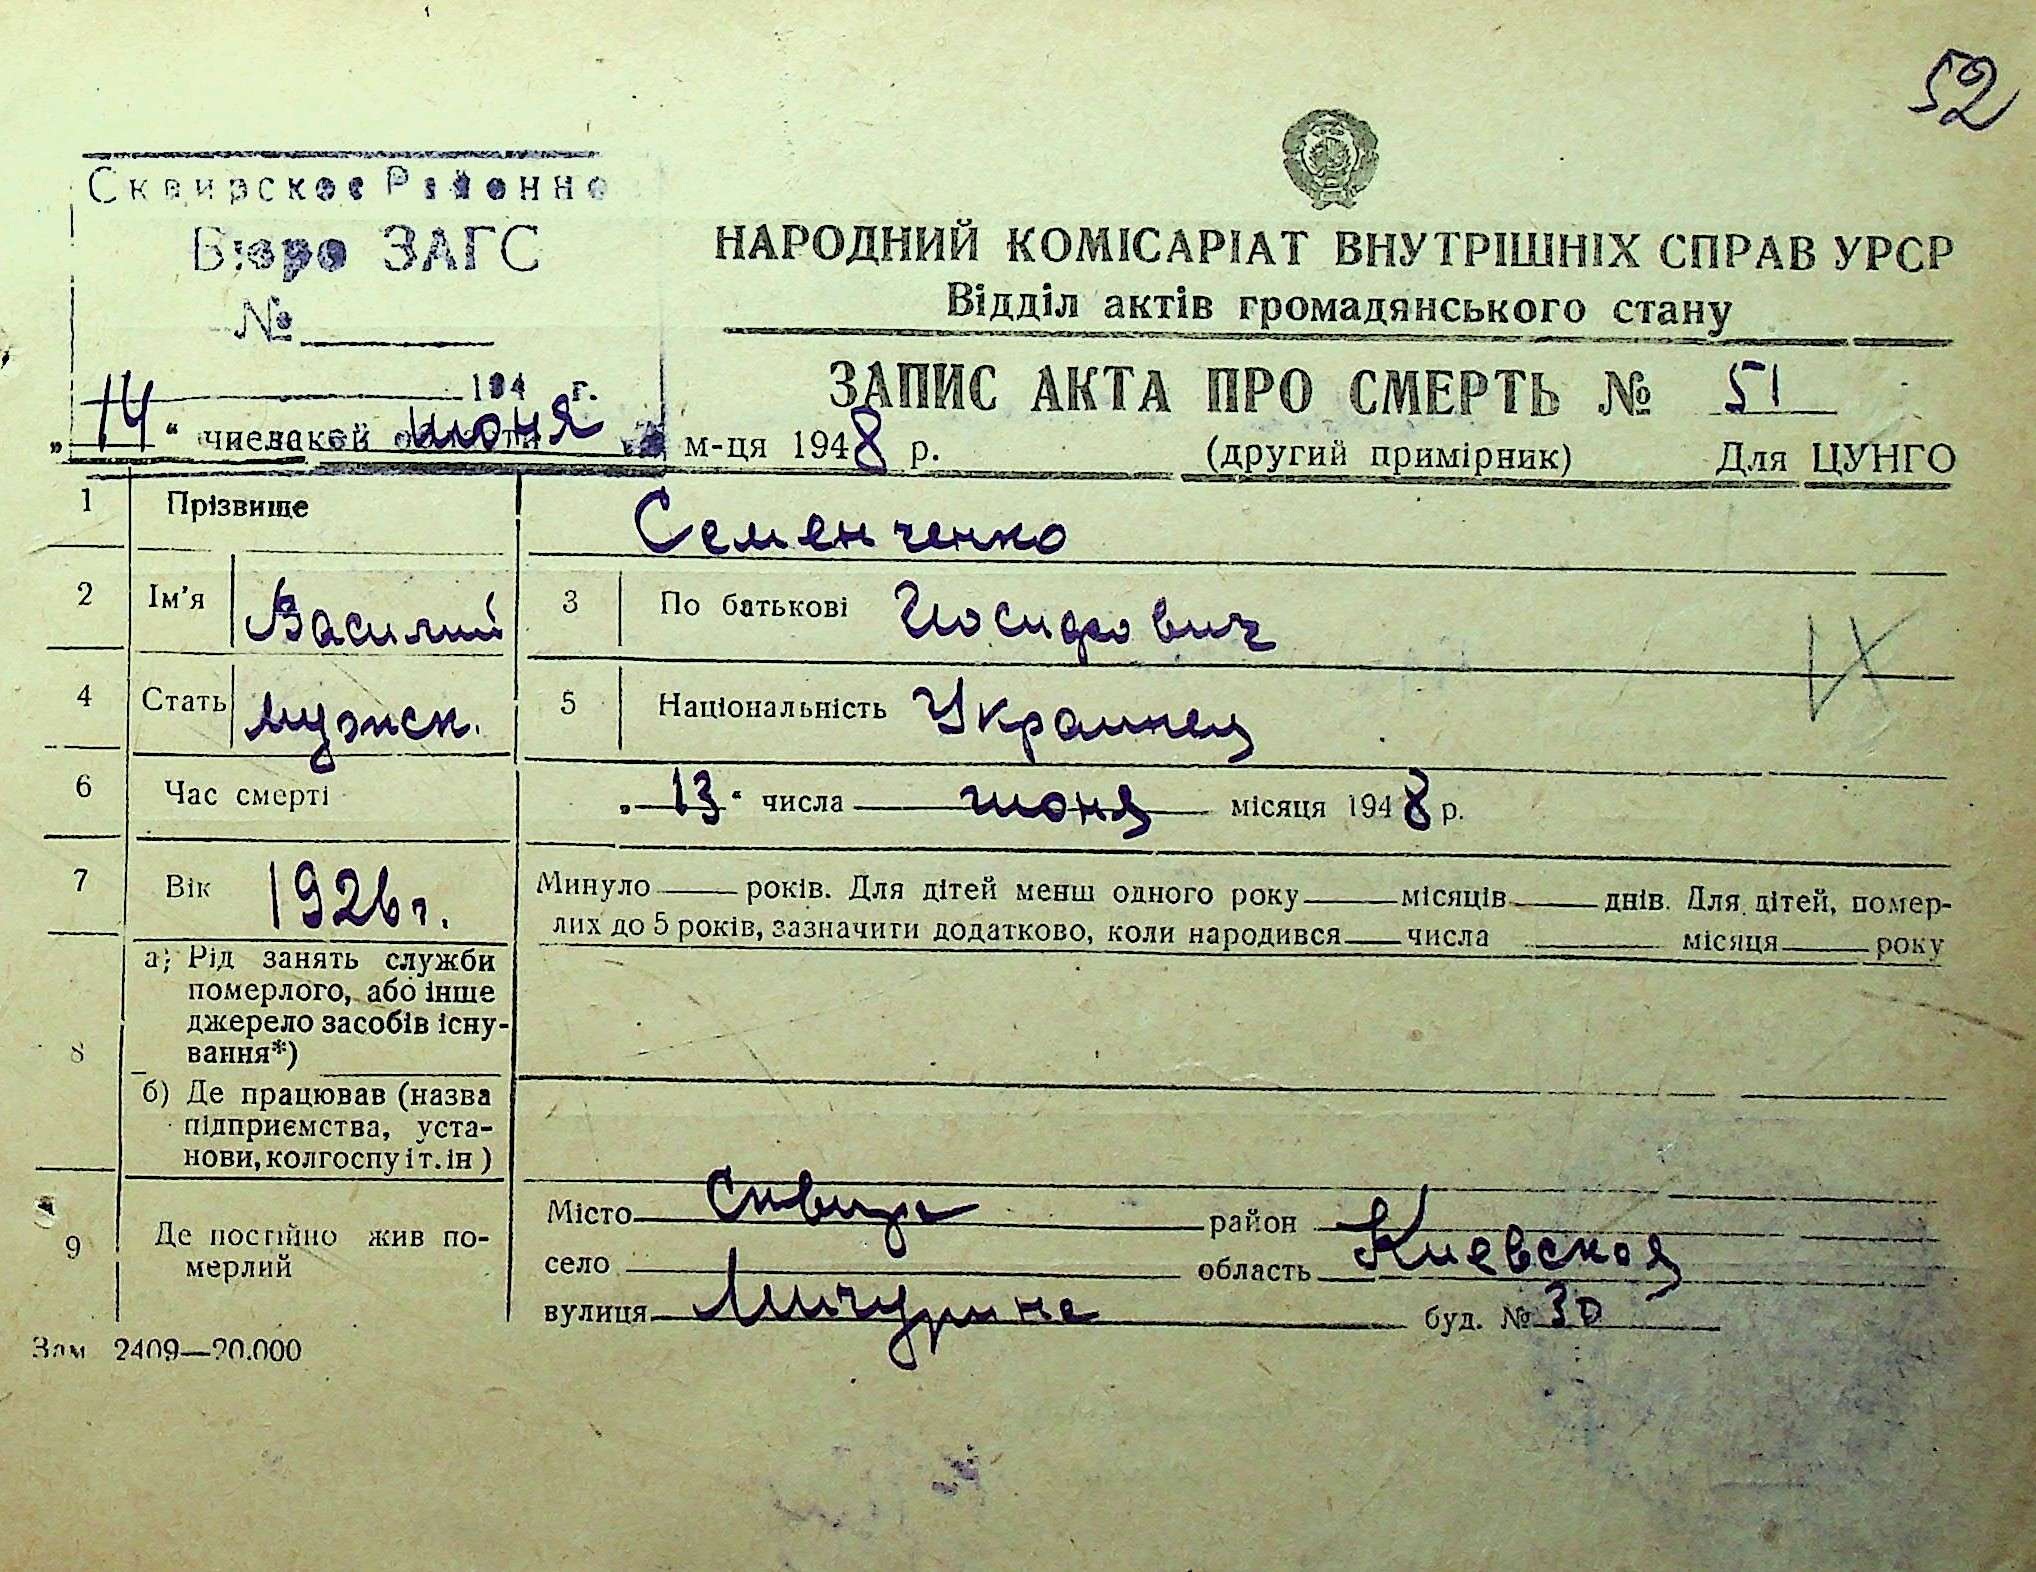 52
Сквирское Районно
Бюро ЗАГС
№
194 г.
НАРОДНИЙ КОМІСАРІАТ ВНУТРІШНІХ СПРАВ УРСР
Відділ актів громадянського стану
ЗАПИС АКТА ПРО СМЕРТЬ № 51
„14“ числа июня м-ця 1948 р. (другий примірник) Для ЦУНГО
1 Прізвище Семенченко
2 Ім'я Василий 3 По батькові Иосифович
4 Стать мужск. 5 Національність Украинец
6 Час смерті „13“ числа июня місяця 1948 р.
7 Вік 1926 г. Минуло років. Для дітей менш одного року місяців днів. Для дітей, помер-
лих до 5 років, зазначити додатково, коли народився числа місяця року
8 а) Рід занять служби
померлого, або інше
джерело засобів існу-
вання*)
б) Де працював (назва
підприємства, уста-
нови, колгоспу і т. ін)
9 Де постійно жив по-
мерлий
Місто Сквира район
село область Киевская
вулиця Мичурина буд. № 30
Зам 2409—20.000